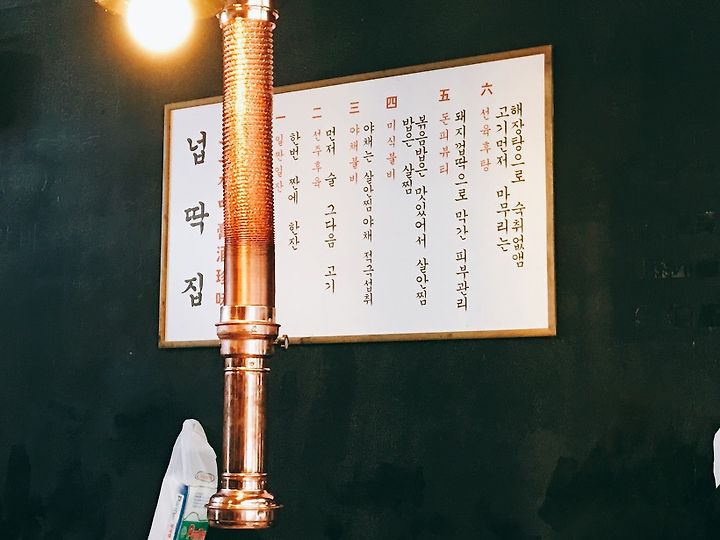 넙딱집
膏酒珍味
一
일짠일잔
한번 짠에 한잔
二
선주후육
먼저 술 그다음 고기
三
야채불비
야채는 살안찜 야채 적극섭취
四
미식불비
볶음밥은 맛있어서 살안찜
밥은 살찜
五
돈피뷰티
돼지껍딱으로 막간 피부관리
六
선육후탕
해장탕으로 숙취없앰
고기먼저 마무리는